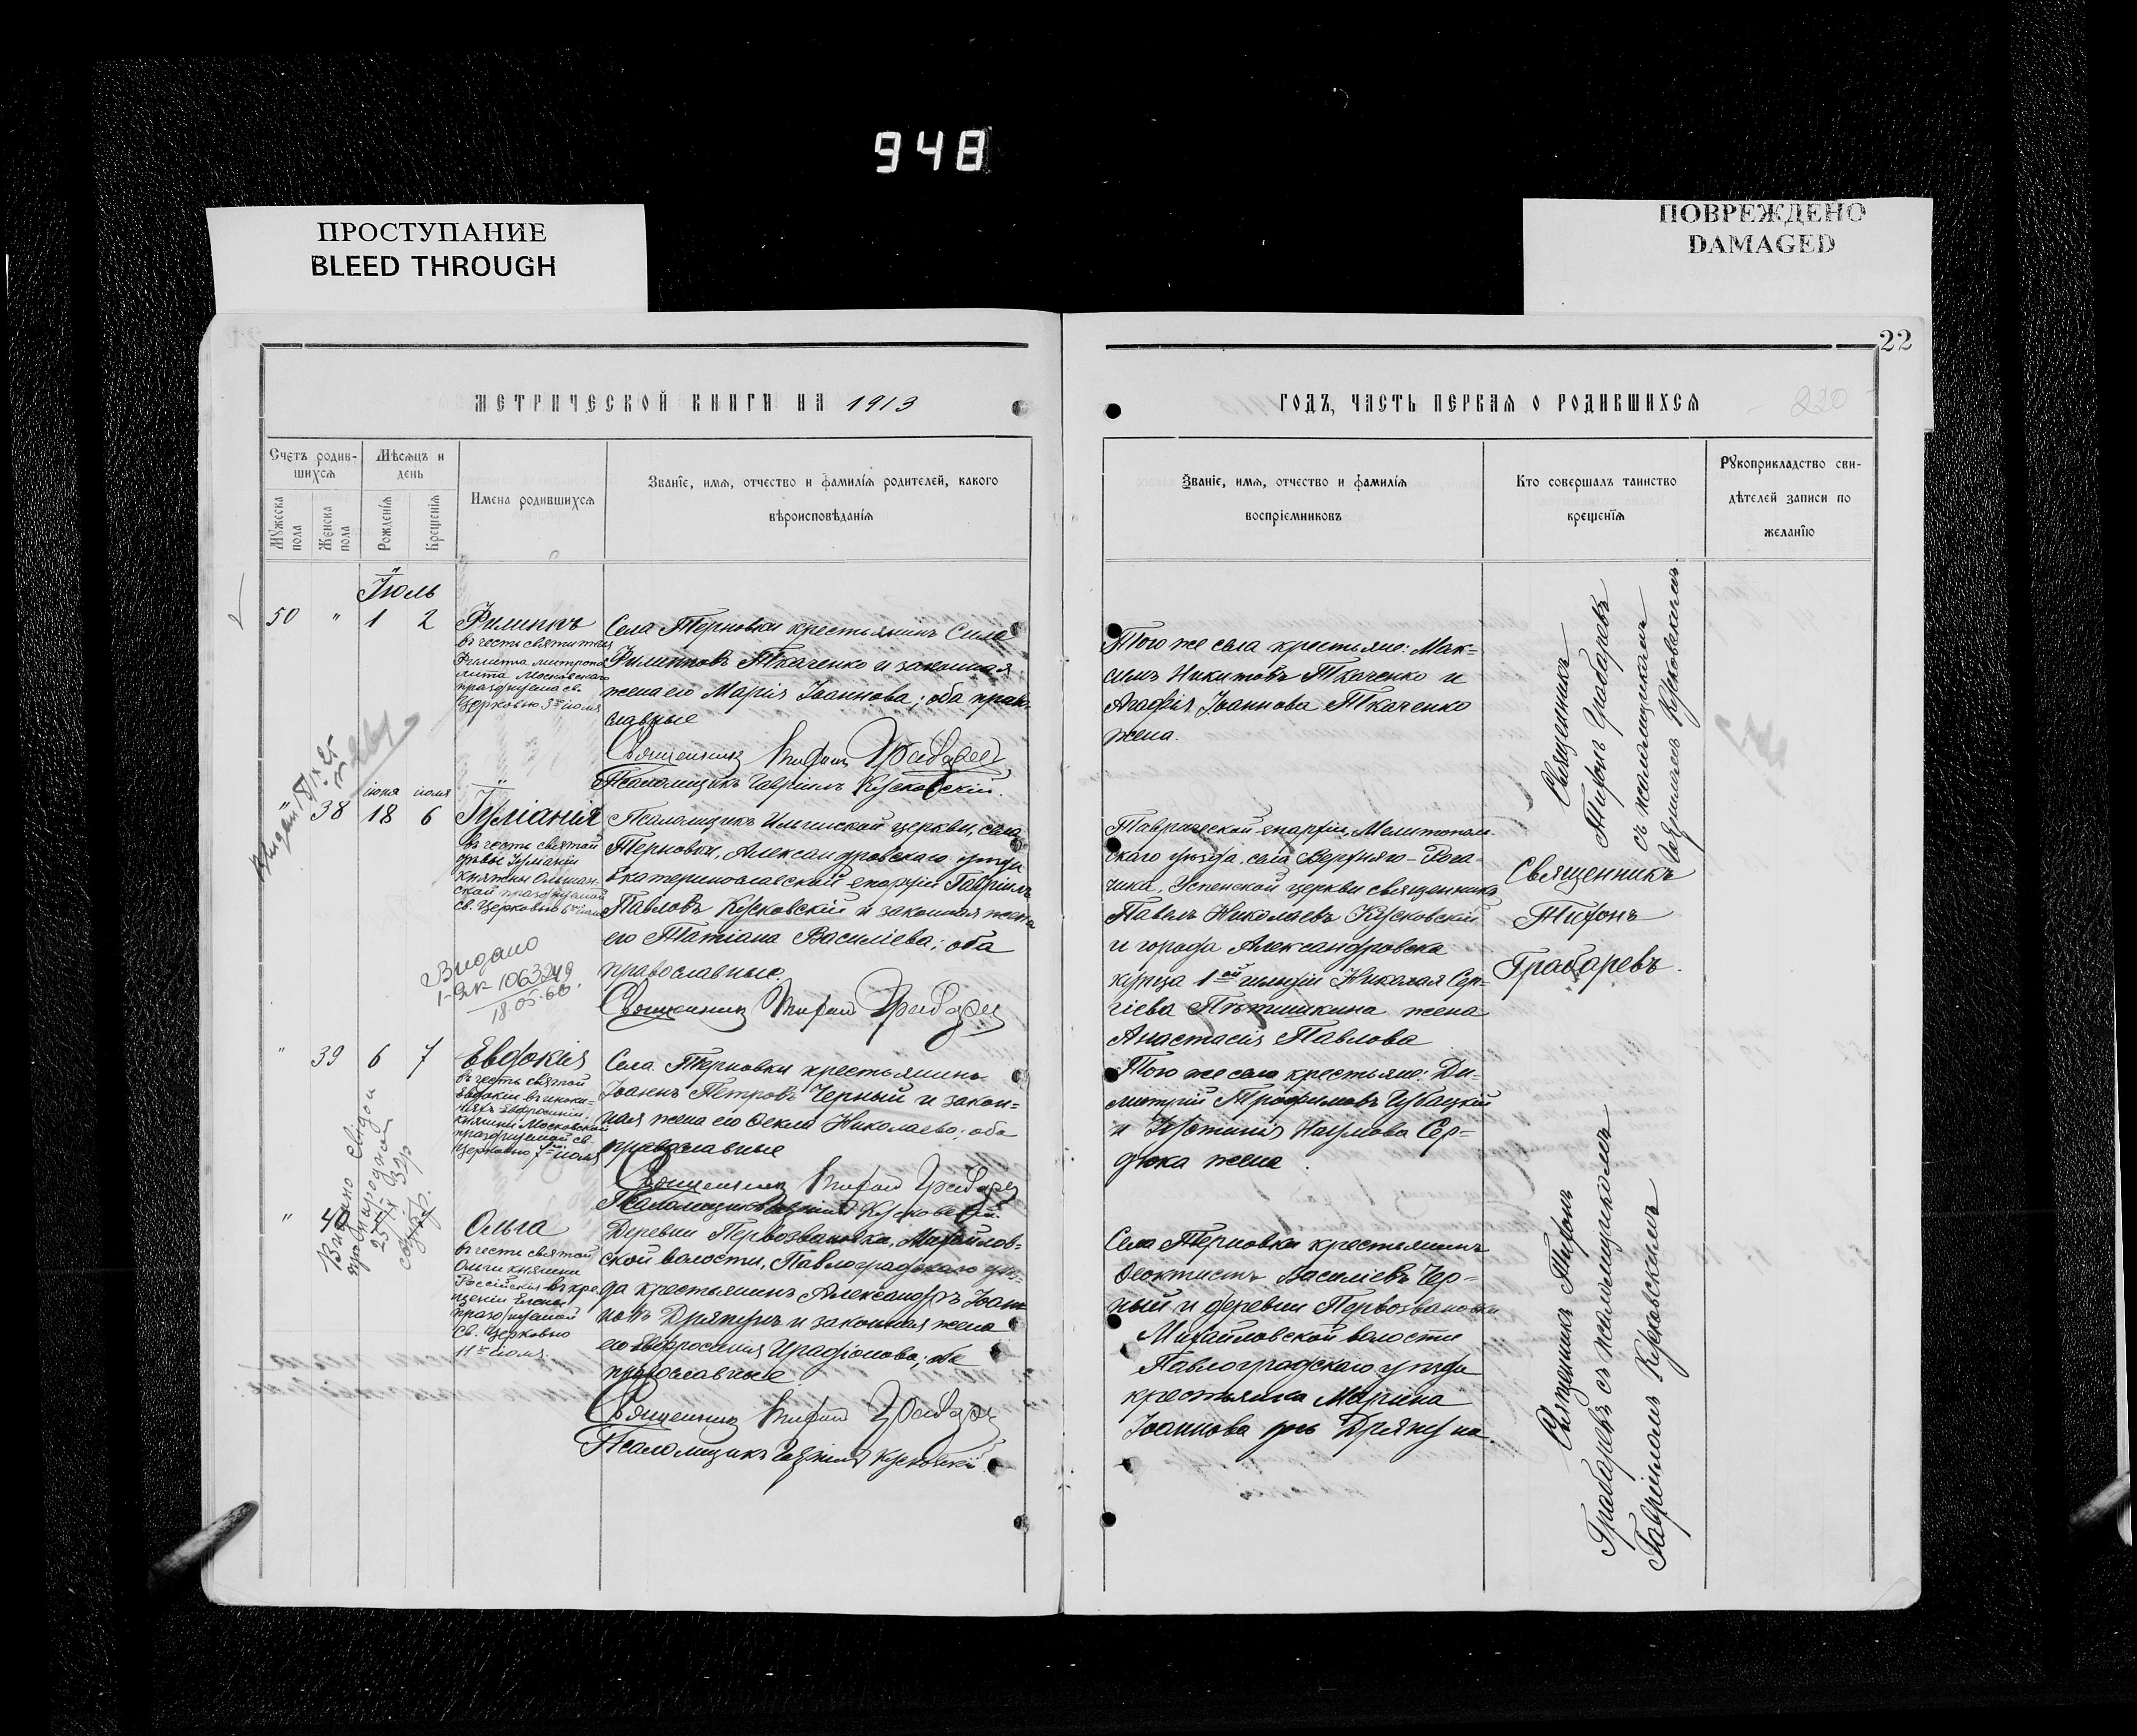 948
ПРОСТУПАНИЕ
BLEED THROUGH
ПОВРЕЖДЕНО
DAMAGED
22
МЕТРИЧЕСКОЙ КНИГИ НА 1913
ГОДЪ, ЧАСТЬ ПЕРВАЯ О РОДИВШИХСЯ
220
Счетъ родив-
шихся
Мужеска
пола
Женска
пола
Мѣсяцъ и
день
Рожденія
Крещенія
Имена родившихся
Званіе, имя, отчество и фамилія родителей, какого
вѣроисповѣданія
Званіе, имя, отчество и фамилія
воспріемниковъ
Кто совершалъ таинство
крещенія
Рукоприкладство сви-
дѣтелей записи по
желанію
Іюль
50 " 1 2
Филиппъ
въ честь святителя
Филиппа митропо
лита Московскаго
празднуема св.
Церковью 3го іюля
Села Терновки крестьянинъ Сила
Филипповъ Ткаченко и законная
жена его Марія Іоаннова; оба право
славные
Священникъ Тифонъ Грабаревъ
Псаломщикъ Гавріилъ Кусковскій.
Того же села крестьяне: Мак=
симъ Никитовъ Ткаченко и
Агафія Іоаннова Ткаченко
жена.
Священникъ
Тифонъ Грабаревъ
съ псаломщикомъ
Гавріиломъ Кусковскимъ
іюня іюля
" 38 18 6
Іуліанія
въ честь святой
дѣвы Іуліаніи
княжны Ольшан
ской празднуемой
Св. Церковью 6го іюля
Видано
1-ЭК 1063249
18.05.66.
Псаломщикъ Ильинской церкви, села
Терновки, Александровскаго уѣзда
Екатеринославской епархіи Гавріилъ
Павловъ Кусковскій и законная жена
его Татіана Василіева; оба
православные.
Священникъ Тифонъ Грабаревъ
Таврической епархіи, Мелитополь
скаго уѣзда, села Верхняго-Рога=
чика, Успенской церкви священникъ
Павелъ Николаевъ Кусковскій
и города Александровска
купца 1ой гильдіи Николая Сер=
гіева Пѣтишкина жена
Анастасія Павлова
Священникъ
Тифонъ
Грабаревъ.
" 39 6 7
Евдокія
въ честь святой
Евдокіи въ иноки=
няхъ Евфросиніи,
княгини Московской
празднуемой св.
Церковью 7го іюля
Села Терновки крестьянинъ
Іоаннъ Петровъ Черный и закон=
ная жена его Ѳекла Николаева; оба
православные
Священникъ Тифонъ Грабаревъ
Псаломщикъ Гавріилъ Кусковскій.
Того же села крестьяне: Ди=
митрій Трофимовъ
и Наумова Сер=
дюка жена.
" 40
Ольга
въ честь святой
Ольги княгини
Россійской въ кре
щеніи Елены
празднуемой
Св. Церковью
11го іюля.
Деревни Первозвановка, Михайлов=
ской волости, Павлоградскаго уѣз=
да крестьянинъ Александръ Іоан
новъ Дряпунъ и законная жена
его Евфросинія; оба
православные.
Священникъ Тифонъ Грабаревъ
Псаломщикъ Гавріилъ Кусковскій
Села Терновки крестьянинъ
Ѳеоктистъ Василіевъ Чер=
ный и деревни Первозвановки
Михайловской волости
Павлоградскаго уѣзда
крестьянка Марина
Іоаннова
Священникъ Тифонъ
Грабаревъ съ псаломщикомъ
Гавріиломъ Кусковскимъ